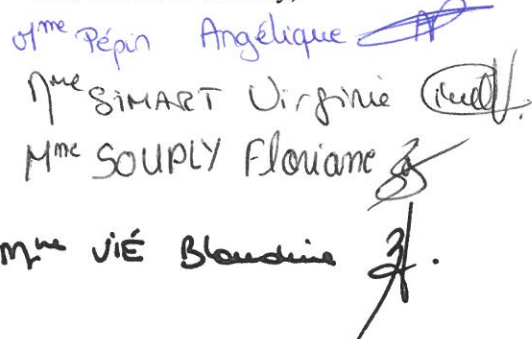 Mme Pépin Angélique
Mme SIMART Virginie
Mme SOUPLY Floriane
Mme VIÉ Blandine